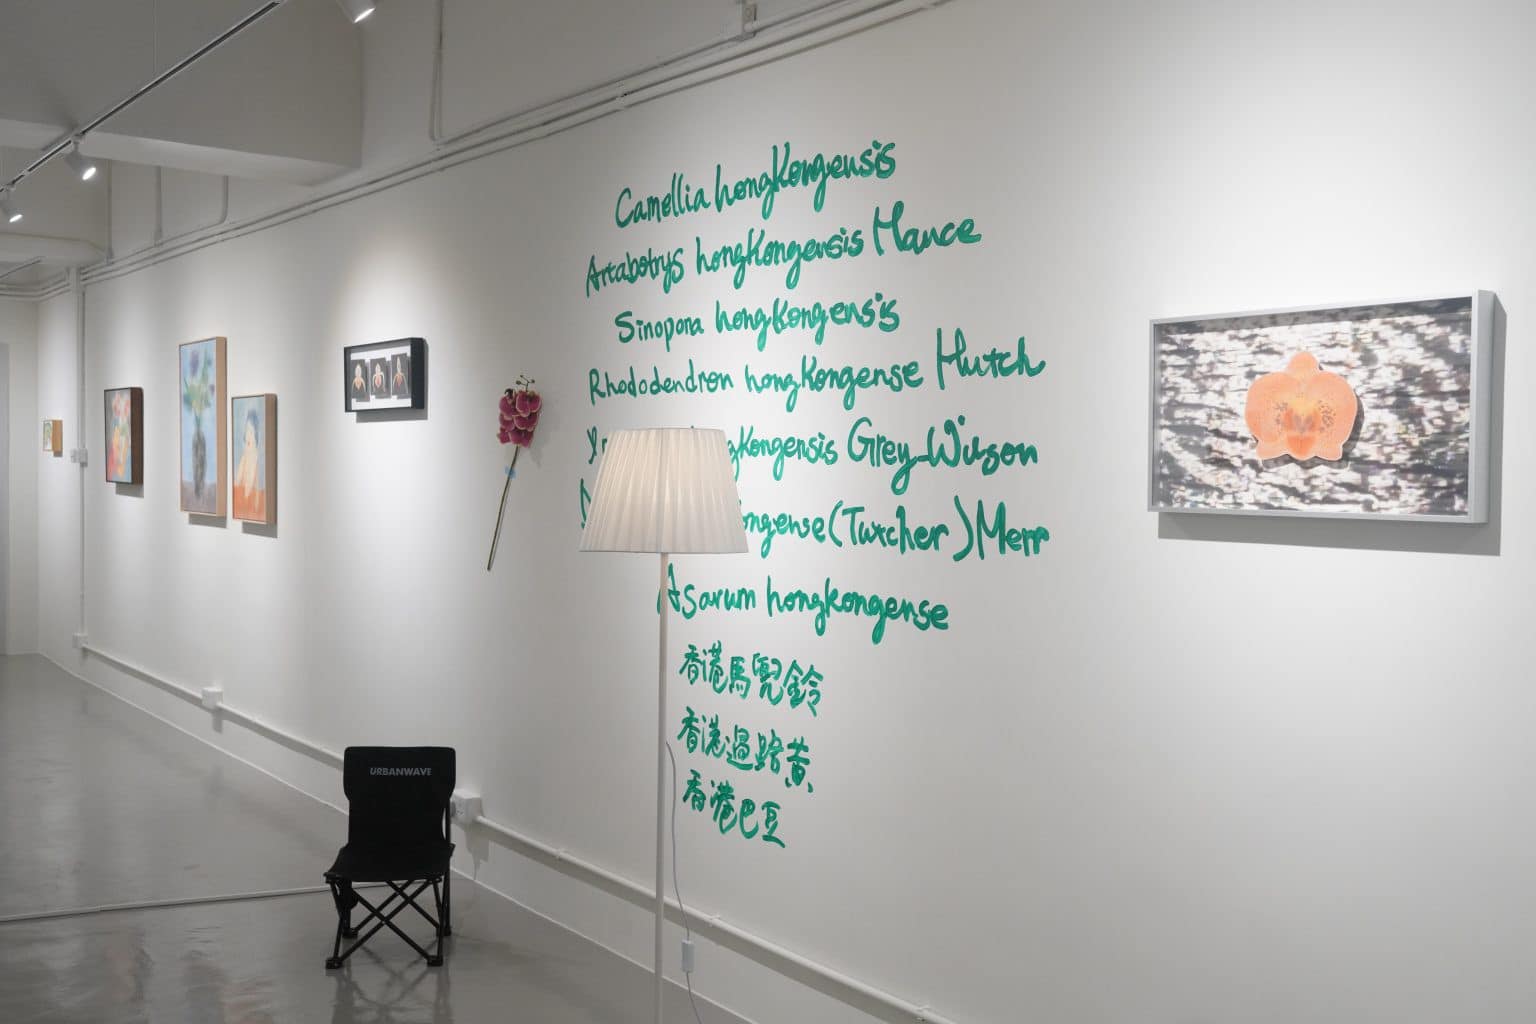 Camellia hongKongensis
Artabotrys hongKongensis Hance
Sinopora hongKongensis
Rhododendron hongKongense Hutch
Kongensis Grey-Wilson
ongense (Tutcher) Merr
Asarum hongkongense
香港馬兜鈴
香港過路黃
香港巴豆
URBANWAVE